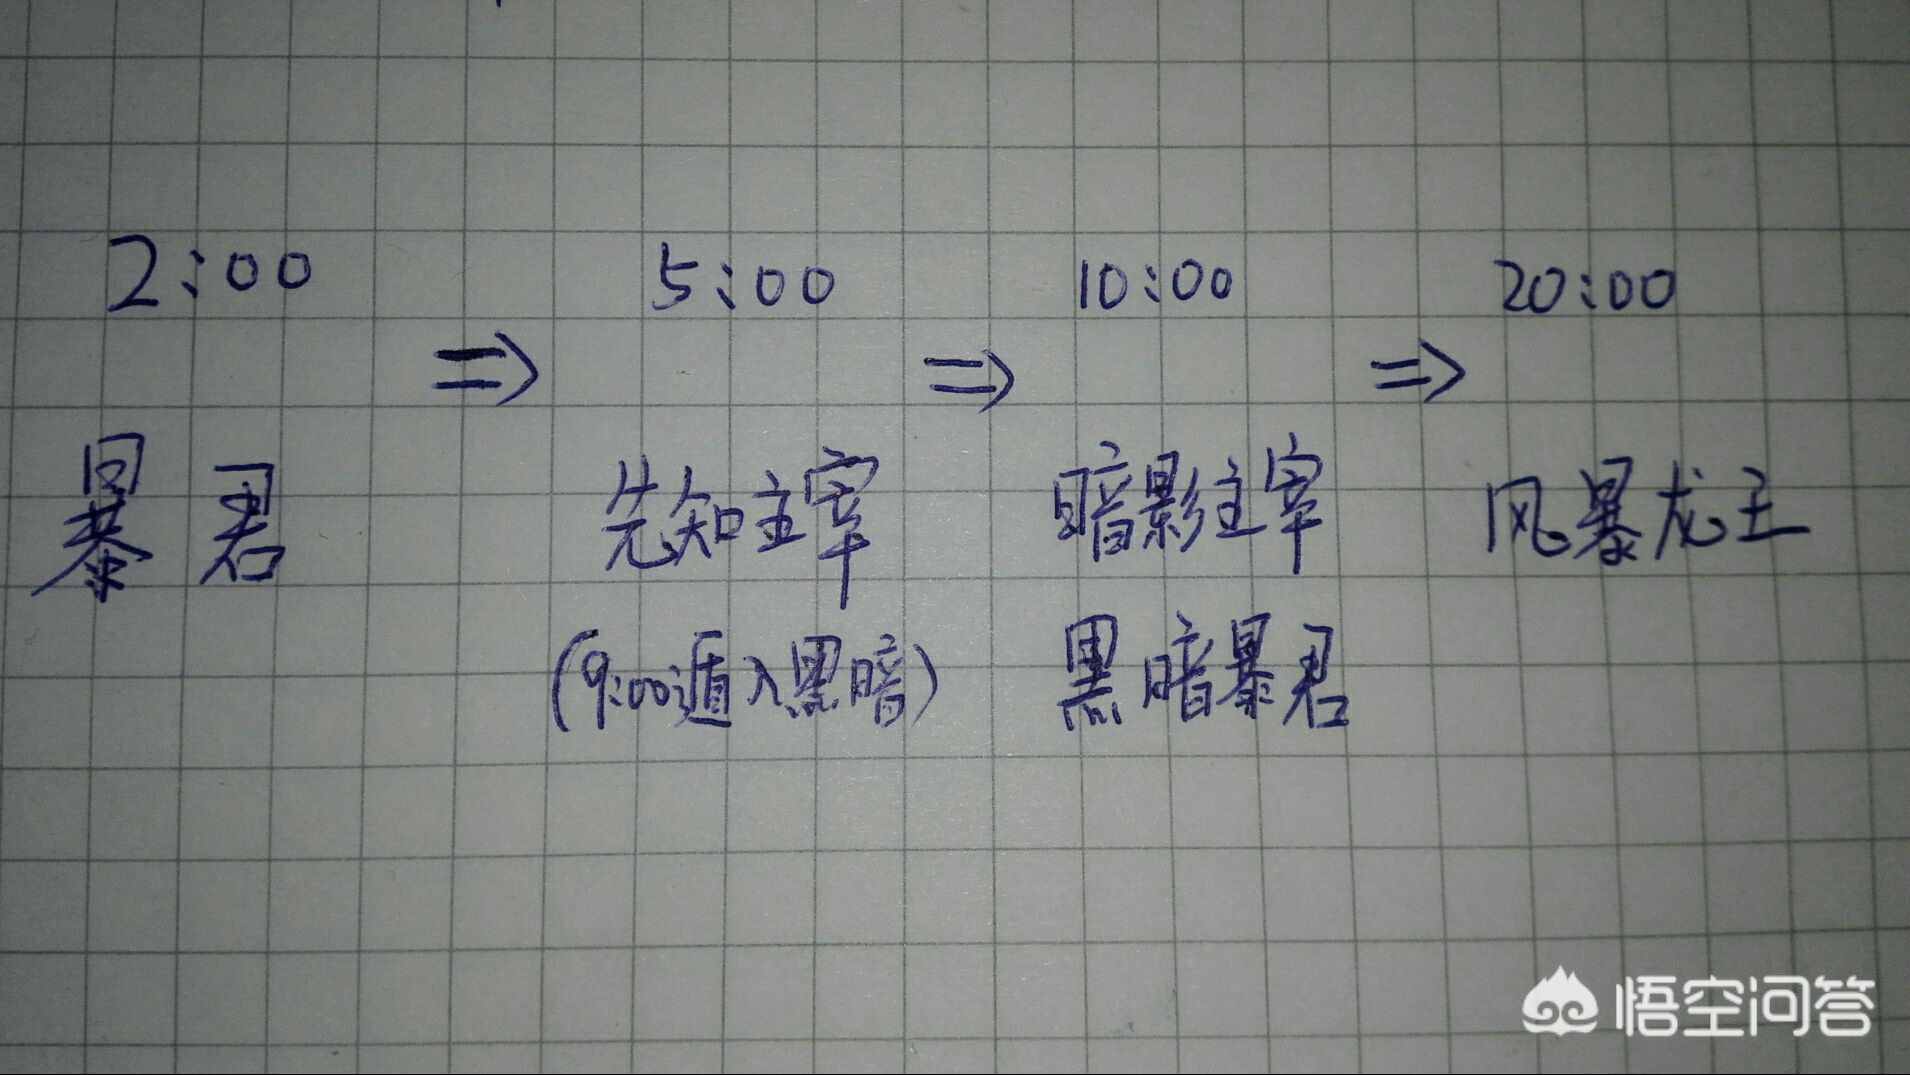 2:00 5:00 10:00 20:00
⇒ ⇒ ⇒
暴君 先知主宰 暗影主宰 风暴龙王
(9:00遁入黑暗) 黑暗暴君
悟空问答